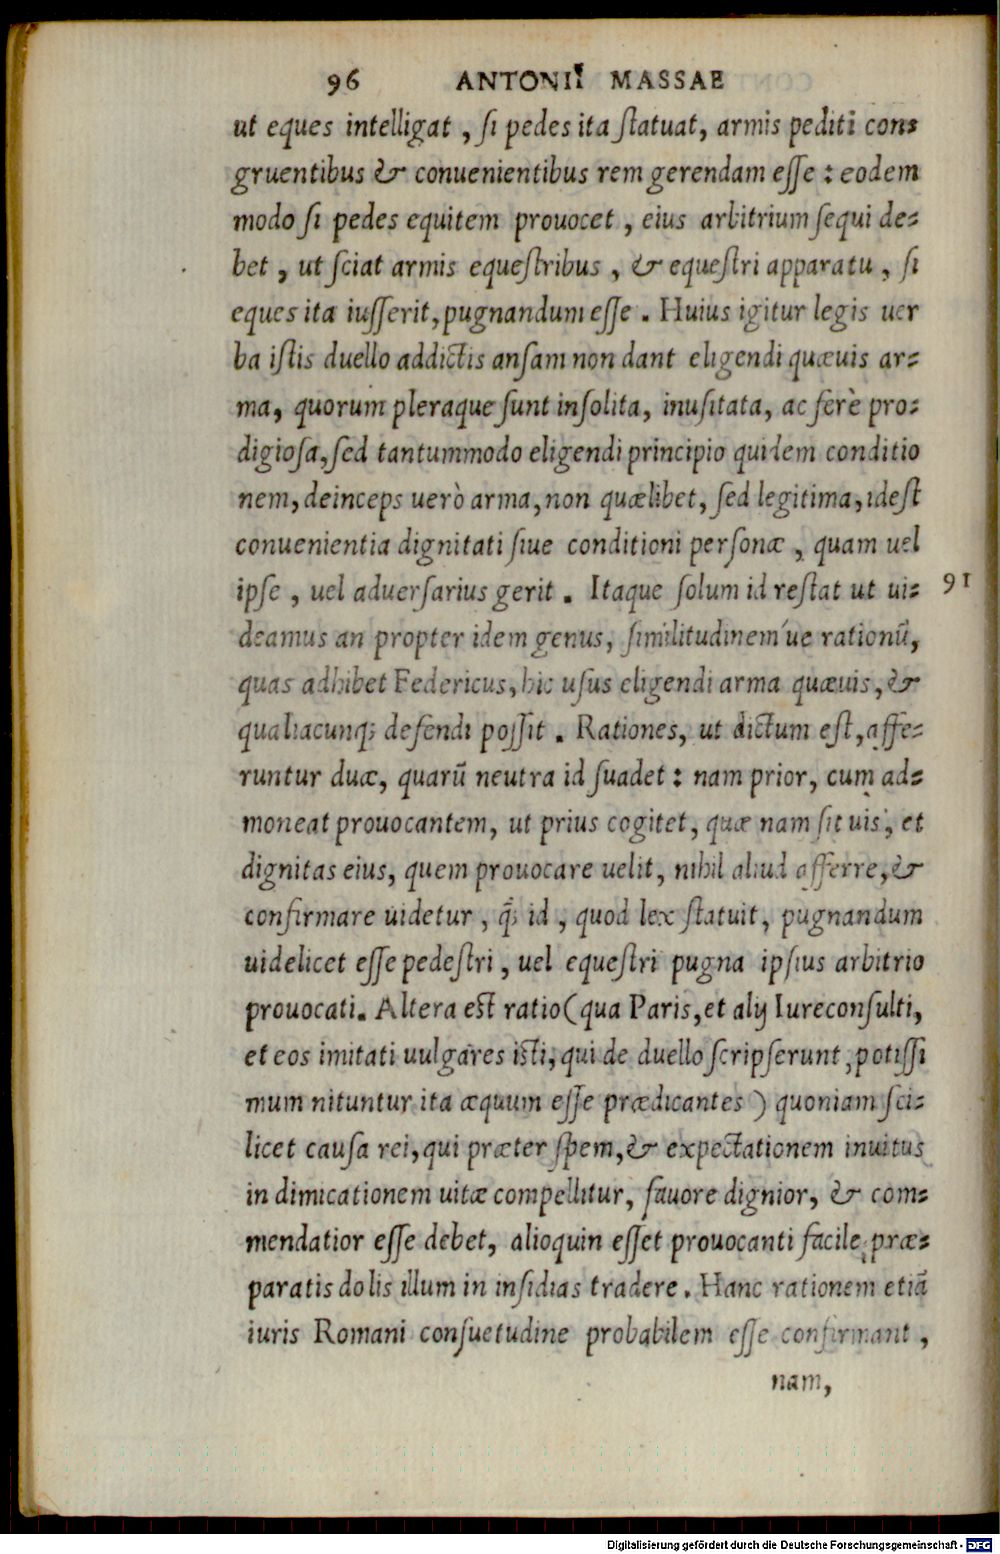 96 ANTONII MASSAE
ut eques intelligat, si pedes ita statuat, armis pediti con-
gruentibus & conuenientibus rem gerendam esse: eodem
modo si pedes equitem prouocet, eius arbitrium sequi de-
bet, ut sciat armis equestribus, & equestri apparatu, si
eques ita iusserit, pugnandum esse. Huius igitur legis uer
ba istis duello addictis ansam non dant eligendi quæuis ar-
ma, quorum pleraque sunt insolita, inusitata, ac ferè pro-
digiosa, sed tantummodo eligendi principio quidem conditio
nem, deinceps uerò arma, non quælibet, sed legitima, idest
conuenientia dignitati siue conditioni personæ, quam uel
ipse, uel aduersarius gerit. Itaque solum id restat ut ui- 91
deamus an propter idem genus, similitudinem'ue rationũ,
quas adhibet Federicus, hic usus eligendi arma quæuis, &
qualiacunq; defendi possit. Rationes, ut dictum est, affe-
runtur duæ, quarũ neutra id suadet: nam prior, cum ad-
moneat prouocantem, ut prius cogitet, quæ nam sit uis, et
dignitas eius, quem prouocare uelit, nihil aliud afferre, &
confirmare uidetur, q̃; id, quod lex statuit, pugnandum
uidelicet esse pedestri, uel equestri pugna ipsius arbitrio
prouocati. Altera est ratio (qua Paris, et alij Iureconsulti,
et eos imitati uulgares isti, qui de duello scripserunt, potissi
mum nituntur ita æquum esse prædicantes) quoniam sci-
licet causa rei, qui præter spem, & expectationem inuitus
in dimicationem uitæ compellitur, fauore dignior, & com-
mendatior esse debet, alioquin esset prouocanti facile præ-
paratis dolis illum in insidias tradere. Hanc rationem etiã
iuris Romani consuetudine probabilem esse confirmant,
nam,
Digitalisierung gefördert durch die Deutsche Forschungsgemeinschaft - DFG